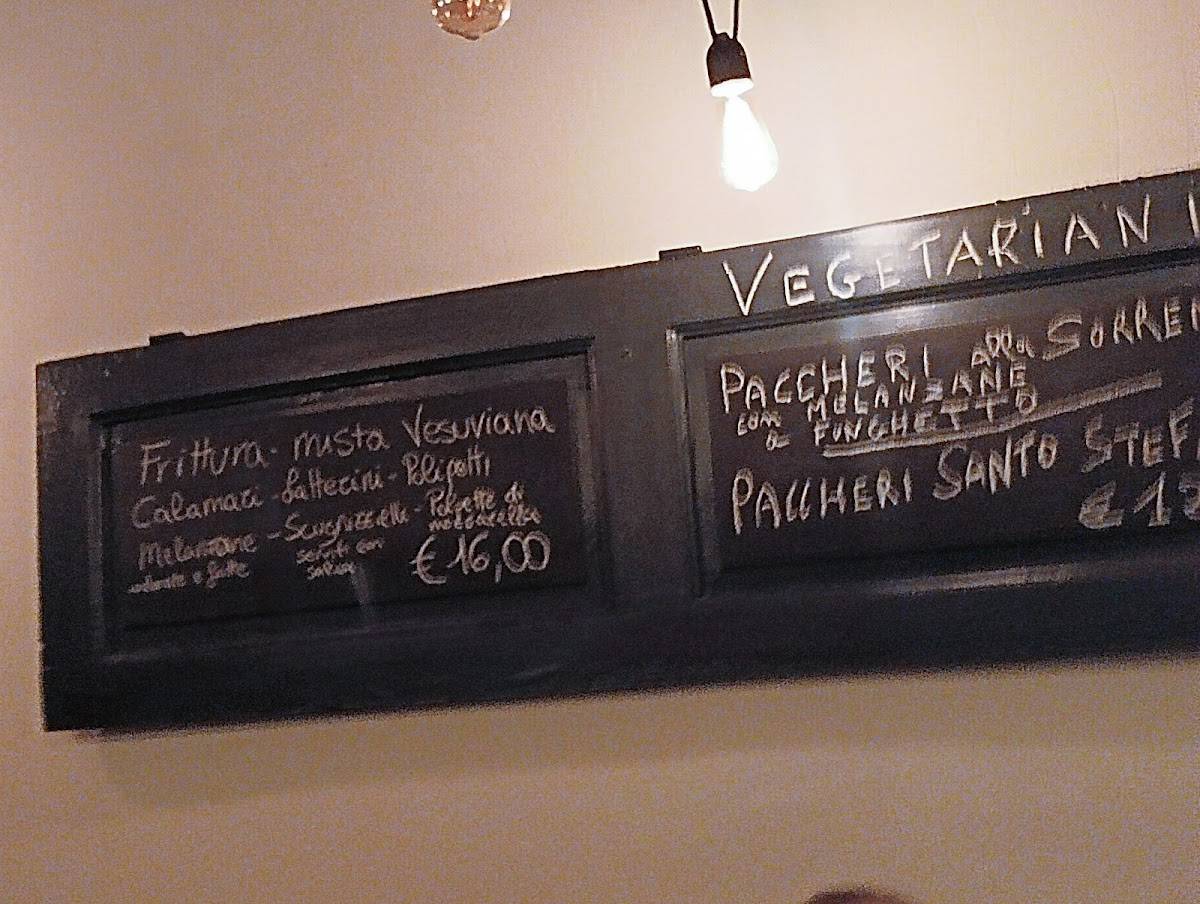 Frittura mista Vesuviana
Calamari - Latterini - Polipetti
Melanzane - Scugnizzielli - Polpette di
mozzarella
serviti con
salsa
€16,00
VEGETARIAN
PACCHERI alla SORREN
CON MELANZANE
A FUNGHETTO
PACCHERI SANTO STEF
€1